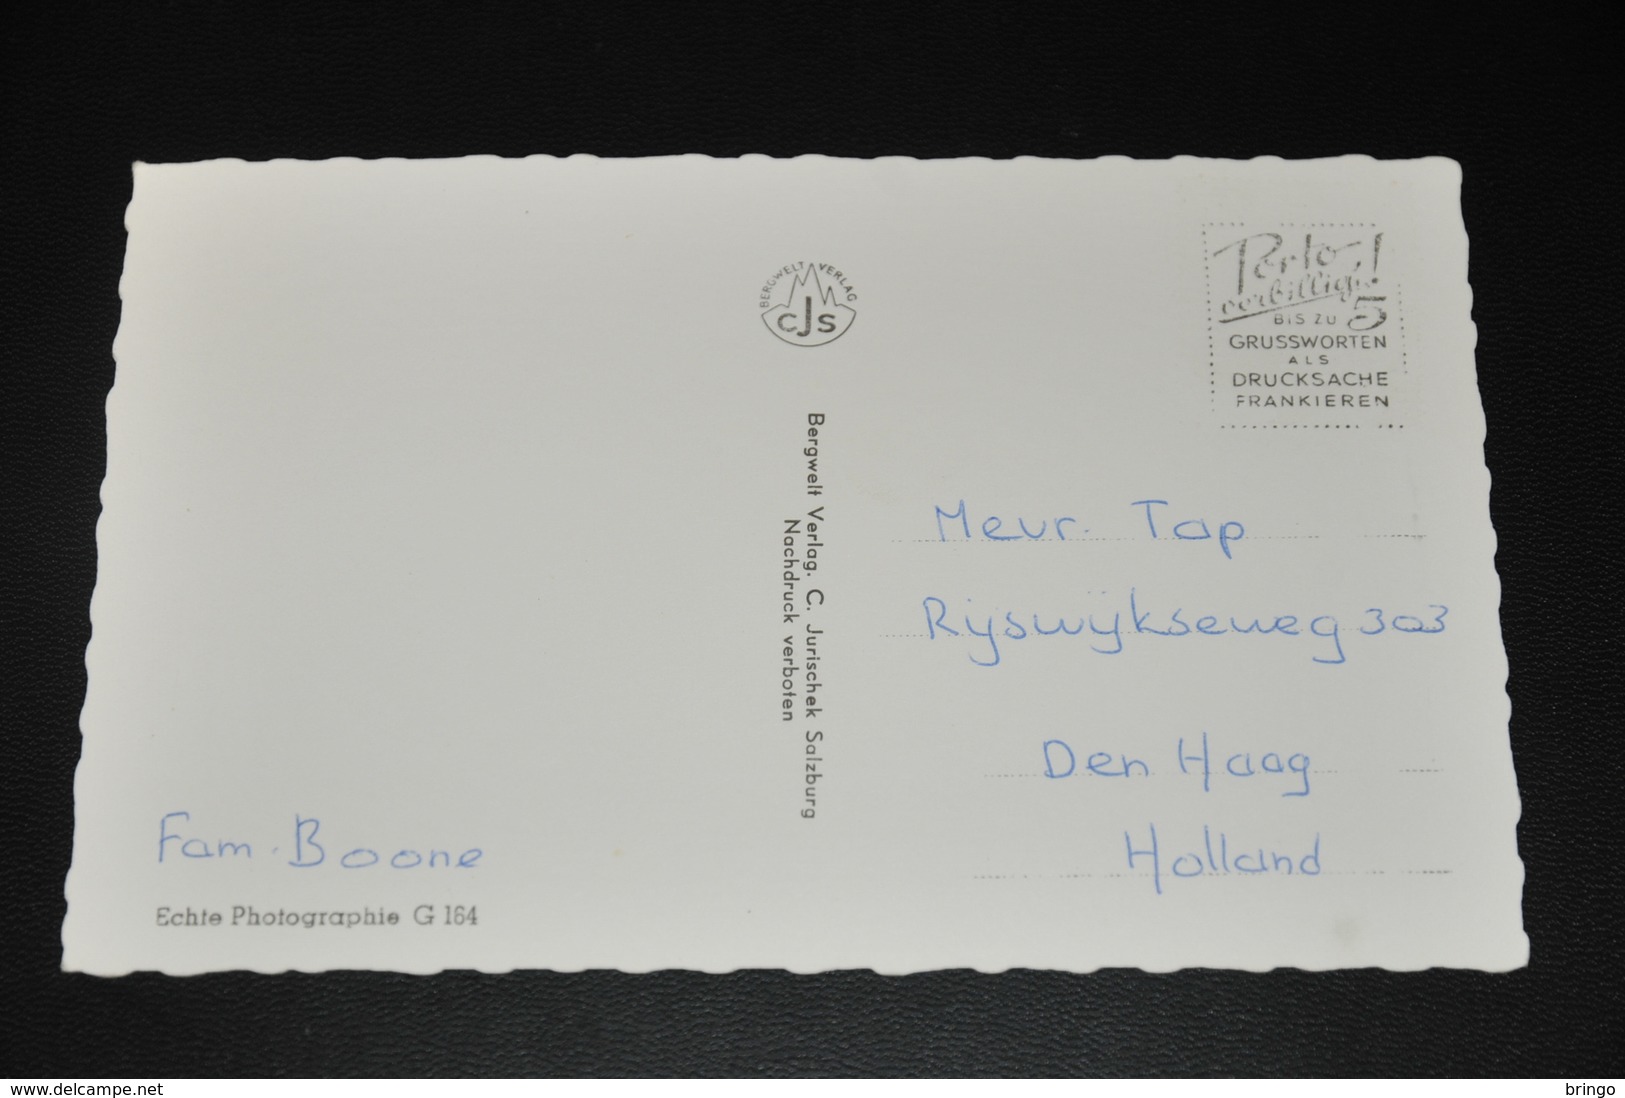 BERGWELT VERLAG
CJS
Porto
verbilligt!
BIS ZU 5
GRUSSWORTEN
ALS
DRUCKSACHE
FRANKIEREN
Bergwelt Verlag. C. Jurischek Salzburg
Nachdruck verboten
Mevr. Tap
Rijswijkseweg 303
Den Haag
Holland
Fam. Boone
Echte Photographie G 164
www.delcampe.net
bringo